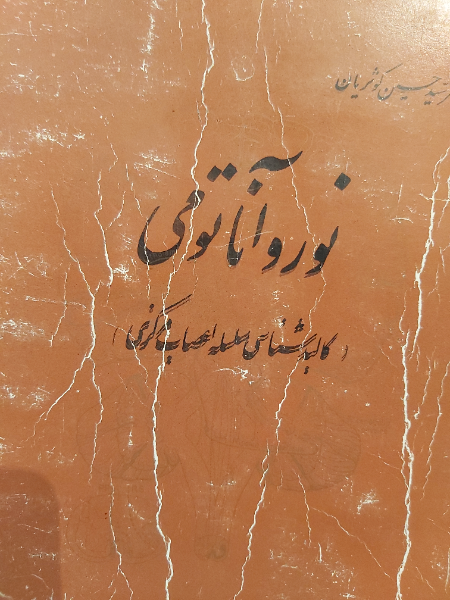 سید حسین کوثریان
نوروآناتومی
(کالبدشناسی سلسله اعصاب مرکزی)